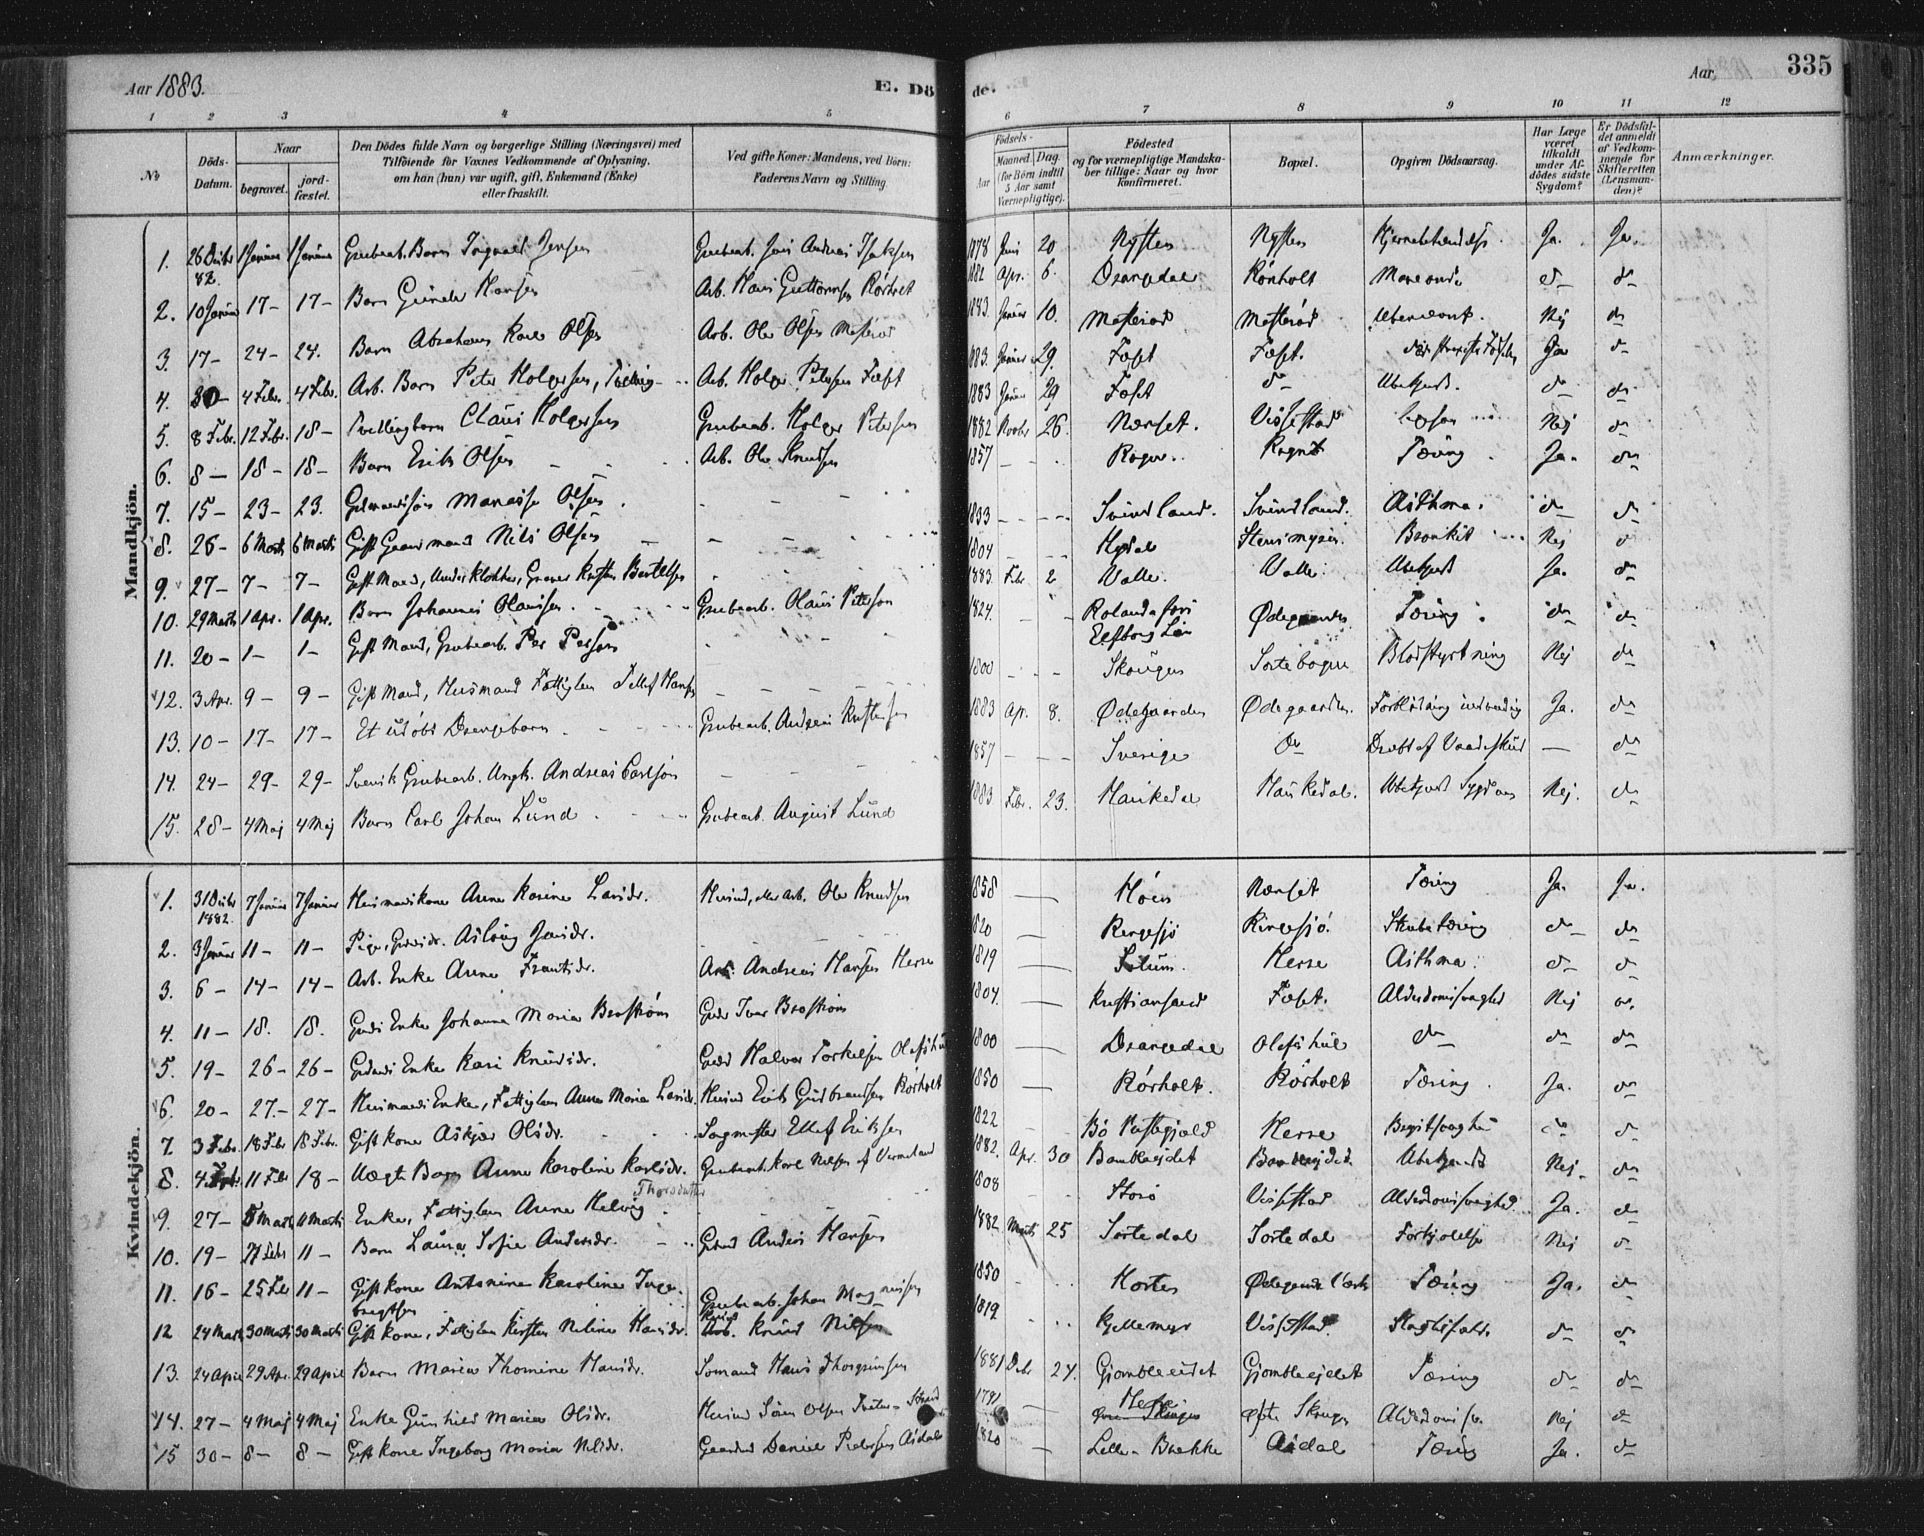 Aar 1883. E. Dö de. Aar 335
1 2 3 4 5 6 7 8 9 10 11 12
No Döds-Datum. Naar begravet. jordfæstet. Den Dödes fulde Navn og borgerlige Stilling (Næringsvei) med Tilföiende for Voxnes Vedkommende af Oplysning, om han (hun) var ugift, gift, Enkemand (Enke) eller fraskilt. Ved gifte Koner: Mandens, ved Börn: Faderens Navn og Stilling. Födsels- Aar Maaned. Dag. (for Börn indtil 5 Aar samt Værnepligtige). Födested og for værnepligtige Mandskaber tillige: Naar og hvor konfirmeret. Bopæl. Opgiven Dödsaarsag. Har Læge været tilkaldt under Afdödes sidste Sygdom? Er Dödsfaldet anmeldt af Vedkommende for Skifteretten (Lensmanden)? Anmærkninger.
Mandkjön.
1. 26 Decbr 82. 1 Januar 1 Januar Grubearb. Barn Ingvald Jensen Grubearb. Jens Andreas Isaksen 1878 Juni 20 Nysten Nysten Ja. Ja.
2. 10 Januar 17- 17- Barn Gunder Hansen Arb. Hans Guttormsen Rörholt 1882 Apr. 6. Drangedal Rörholt d- d-
3. 17- 24- 24. Barn Abraham Karl Olsen Arb. Ole Olsen 1883. Januar 10. Nej d-
4. 30- 4 Febr. 4 Febr. Arb. Barn Peter Holgersen, Tvilling- Arb. Holger Petersen Fæset 1883. Januar 29. Fæset Fæset. Ja d-
5. 8 Febr. 12 Febr. 18- Tvillingbarn Claus Holgersen Grubearb. Holger Petersen 1883 Januar 29 Fæset d- Ubekjendt. d- d-
6. 8- 18- 18- Barn Erik Olsen Arb. Ole Knudsen 1882 Novbr 26. Nærset. Vissestad Nej d-
7. 15- 23- 23. Manasse Olsen 1857 Rogn Tæring Ja. d-
8. 26- 6 Marts 6 Marts Gift Gaardmand Nils Olsen 1833 Svindland. Svindland. Asthma. d- d-
9. 27- 7- 7- Gift Mand, Underklokker, Graver Bertelsen 1804 Hydal Stensmyren. Bronkit Nej d
10. 29 Marts 1 Apr. 1 Apr. Barn Johannes Olausen. Grubearb. Olaus Peterson 1883. Febr. 2 Valle. Valle Ubekjendt Ja. d-
11. 20- 1- 1- Gift Mand, Grubearb. Per Person 1824. Elfborg Län Ødegaarden Tæring. d- d-
12. 3 Apr. 9- 9- Gift Mand, Husmand Fattiglem Tellef Hansen 1800 Skougen Sortebogen Blodstyrtning Nej d-
13. 10- 17- 17- Et udöbt Drengebarn Grubearb. Andreas 1883 Apr. 8. Ødegaarden Ødegaarden. Forblödning indvendig Ja. d-
14. 24- 29- 29- Svensk Grubearb. Ungk. Andreas Carlson 1857 Sverige d- Dræbt af Vaadeskud — d-
15. 28- 4 Maj 4 Maj Barn Carl Johan Lund Grubearb. August Lund 1883 Febr. 23. Haukedal Haukedal. Ubekjendt Sygdom Nej. d-
Kvindekjön.
1. 31 Decbr 1882. 7 Januar 7 Januar Husmandskone Anne Karine Larsdr. Husmd, eller Arb. Ole Knudsen 1858 Höen Nærset Tæring Ja. Ja.
2. 3 Januar 11- 11- Pige, Aslaug Jensdr. 1820 Ringsjö Ringesjö. Strubetæring d- d-
3. 6- 14- 14- Arb. Enke Anne Frantsdr. Arb. Andreas Hansen Herre 1819 Solum. Herre Asthma. d- d-
4. 11- 18. 18. Enke Johanne Maria Broström Ivar Broström 1804. Kristiansand Fæset. Alderdomssvaghed Nej d.
5. 19- 26- 26- Enke Kari Knudsdr. Halvor Torkelsen Olafshul 1800 Drangedal Olafshul d- d- d-
6. 20- 27.- 27- Husmands Enke, Fattiglem Anne Maria Larsdr. Husmd Erik Gudbrandsen Rörholt 1850 Rörholt. Rörholt Tæring. Ja. d-
7. 3 Febr. 18 Febr 18 Febr. Gift kone Askjer Olsdr. Sagmester Ellef Eriksen 1822 Bö Præstegjeld Herre Brystsvaghed d- d-
8. 4 Febr. 11 Febr 18- Uægte Barn Anne Karoline Karlsdr. Grubearb. Karl Nilsen af Vermland 1882. Apr. 30 Bambleejdet Bambleejdet Ubekjendt Nej- d-
9. 27- 11 Marts Enke, Fattiglem Anne Helvig Thorsdatter 1808 Storö Vissestad Alderdomssvaghed. Ja. d-
10. 19- 11 Febr 11- Barn Laura Sofie Andersdr. Anders Hansen 1882 Marts 25 Sortedal Sortedal Forkjölelse Nej d-
11. 16- 25 Febr 11- Gift kone Antonine Karoline Ingebregtsen Grubearb. Johan Magnussen 1850 Horten Ødegaards Værk Tæring Ja. d-
12 24 Marts 30 Marts 30 Marts Gift kone, Fattiglem Kirsten Niline Hansdr. Arb. Knud Nilsen 1819 Kjellemyr Vissestad. Slagtilfælde. d- d-
13. 24 April 29 Apr. 29 April Barn Maria Thomine Hansdr. Sömand Hans Thorgrimsen 1881 Decbr 24. Gjømbleeidet Gjømbleejdet Tæring d- d-
14. 27- 4 Maj 4 Maj Enke Gunhild Maria Olsdr. Husmd Sören Olsen 1791 Herre Skougen Alderdomssv. Nej d-
15 30- 8- 8- Gift kone Ingeborg Maria Nilsdr. Gaardmd Daniel Pedersen Asdal 1820 Lille-Brekke Asdal Tæring Ja. d-